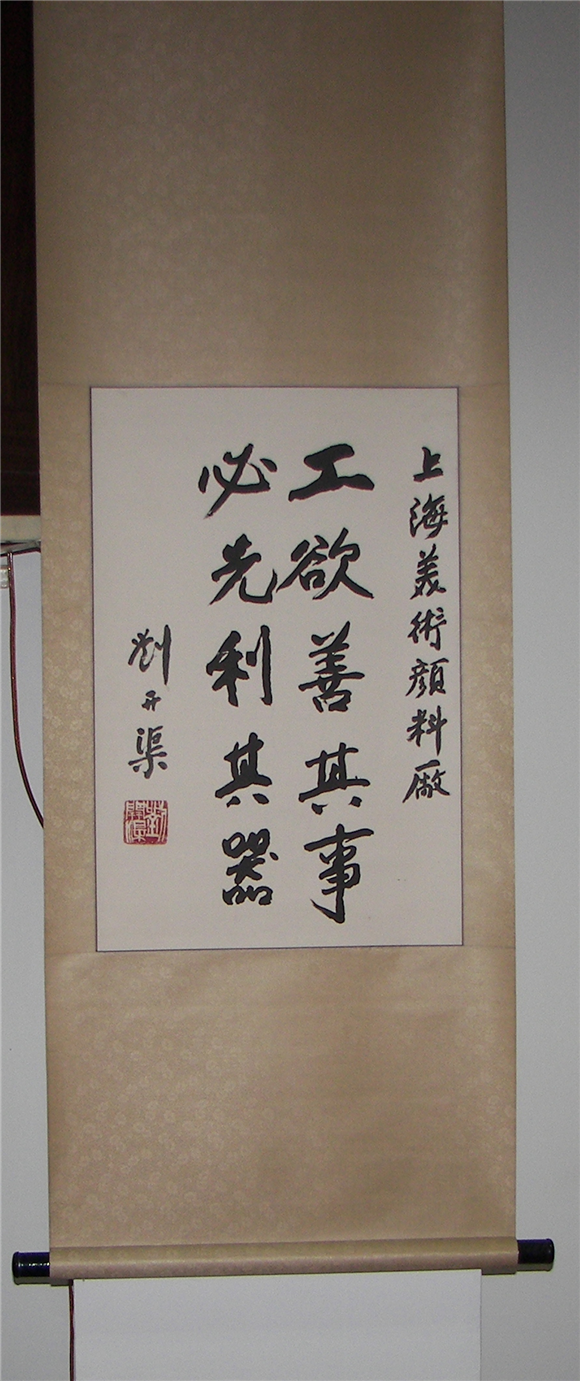 上海美術顔料廠
工欲善其事
必先利其器
劉开渠